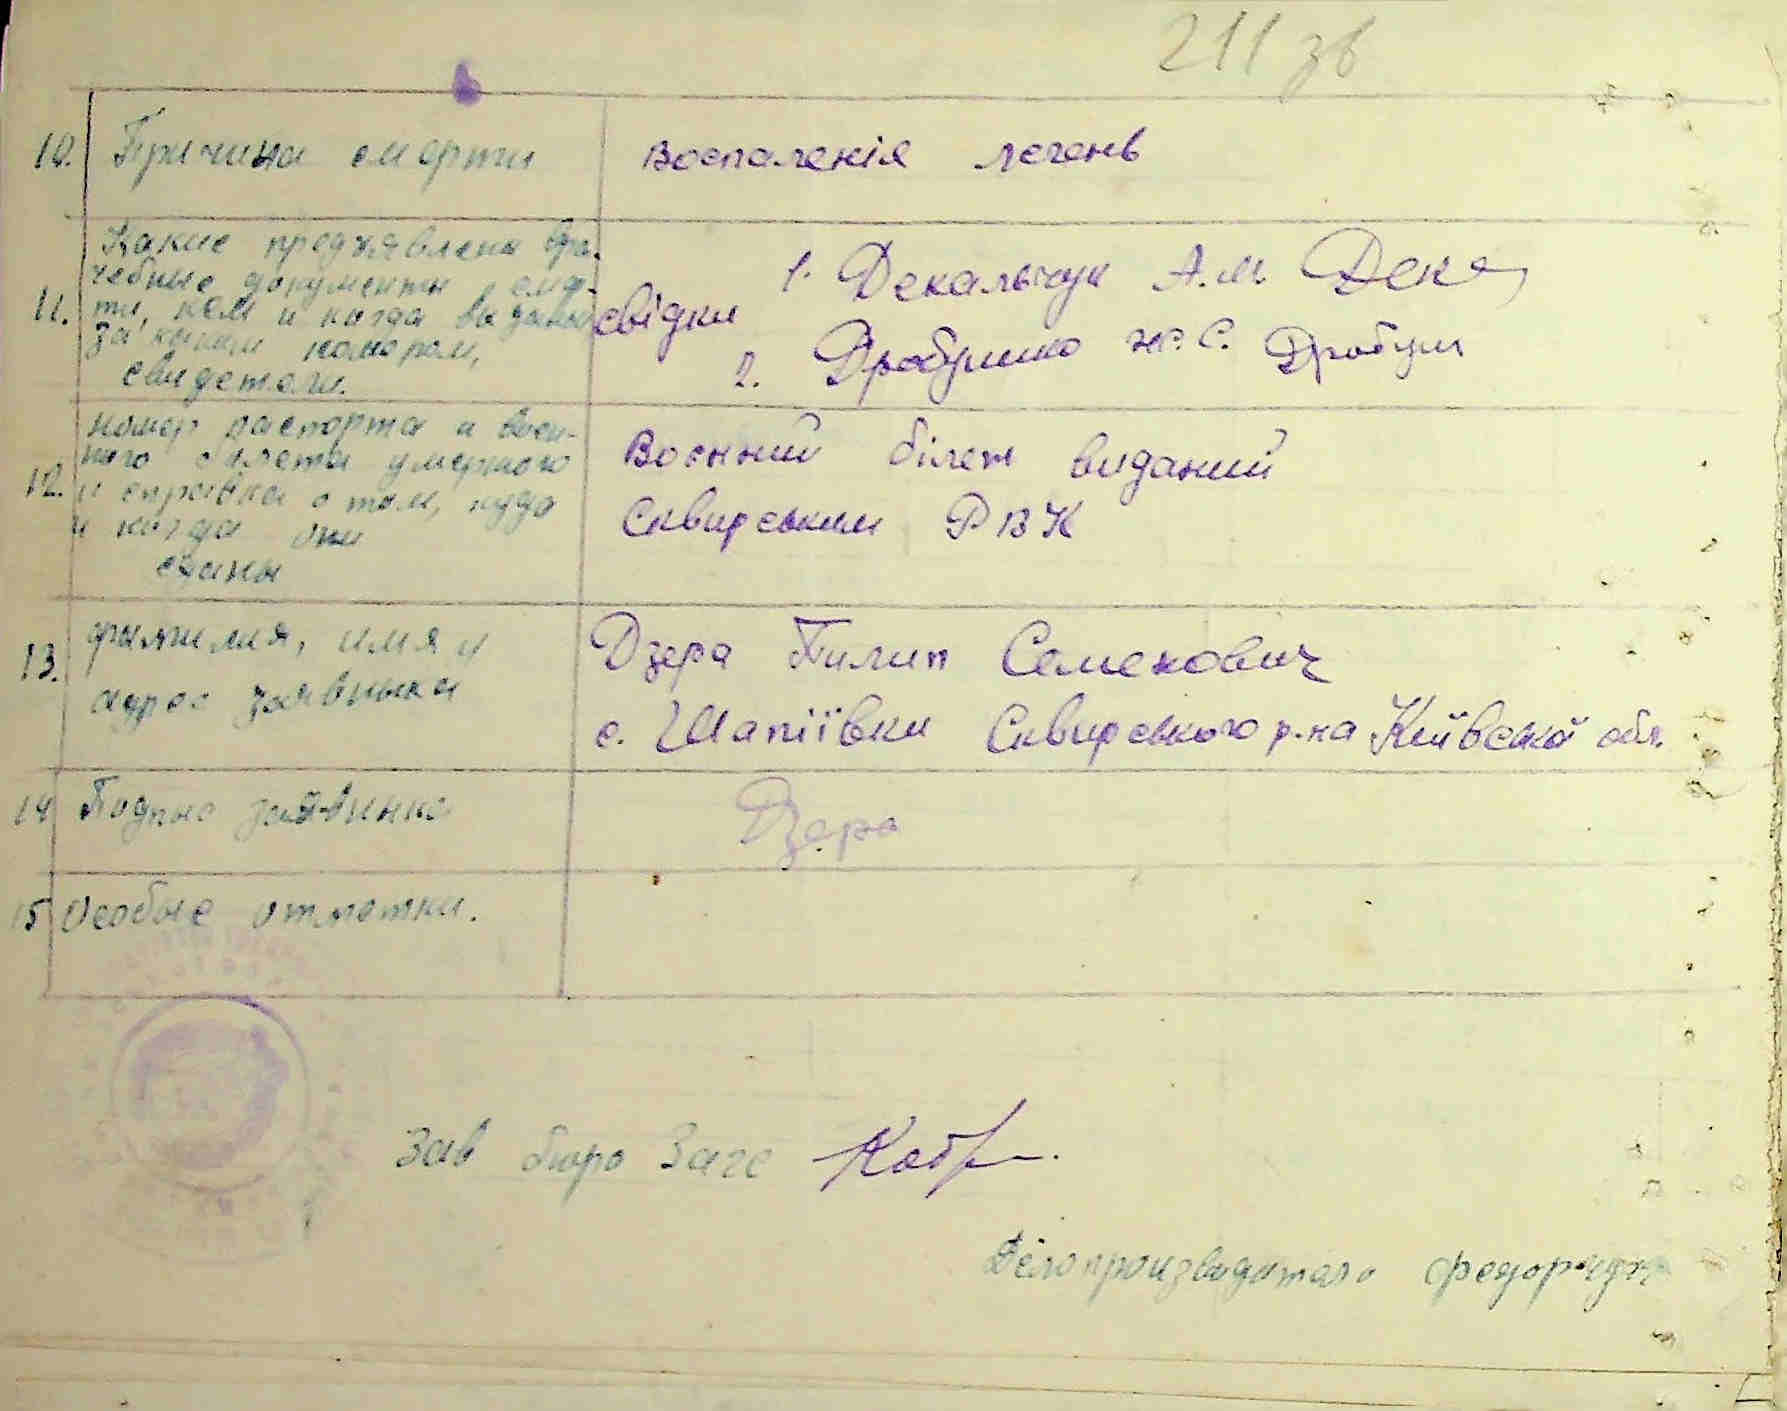 211 зв
10. Причина смерти
Воспаленія легень
11. Какие предъявлены вра-
чебные документы о смер-
ти, кем и когда выданы
за каким номером,
свидетели.
свідки
1. Декальчук А.М. Дека
2. Дробушко Ж.С. Дробуш
12. номер паспорта и воен-
ного билета умершего
и справка о том, куда
и когда они
сданы
Воєнний білет виданий
Сквирським РВК
13. фамилия, имя и
адрес заявника
Дзера Пилип Семенович
с. Шапіївки Сквирського р-на Київської обл.
14 Подпис заявника
Дзера
15 Особые отметки.
Зав бюро Загс
Делопроизводитель